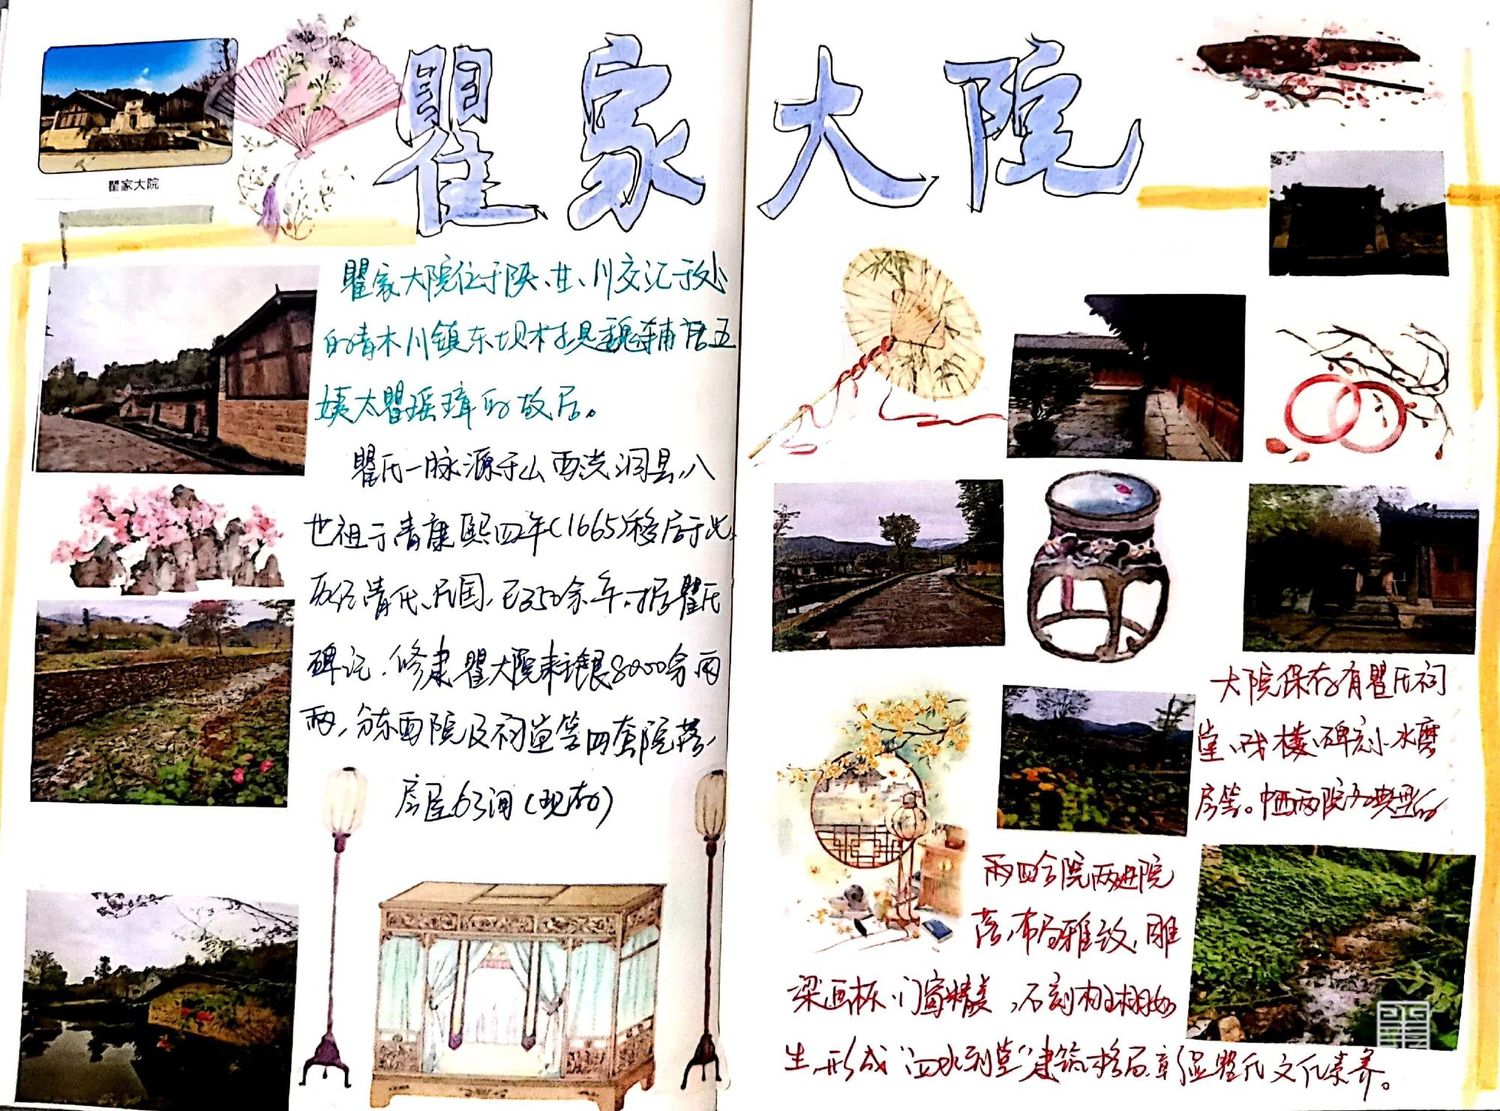 瞿家大院
瞿家大院
瞿家大院位于陕、甘、川交汇于处
的青木川镇东坝村是魏辅唐五
姨太瞿瑶璋的故居。
瞿氏一脉源于山西洪洞县,八
世祖于清康熙四年(1665)移居于此,
历经清代、民国,已350余年,据瞿氏
碑记,修建瞿大院耗银8000余两
两,分东西院及祠堂等四套院落,
房屋63间(现存)
大院保存有瞿氏祠
堂、戏楼、碑、小水磨
房等。中西两院为典型的
两四合院两进院
落,布局雅致,雕
梁画栋,门窗精美,石刻栩栩如
生,形成"四水到堂"建筑格局,彰显瞿氏文化素养。